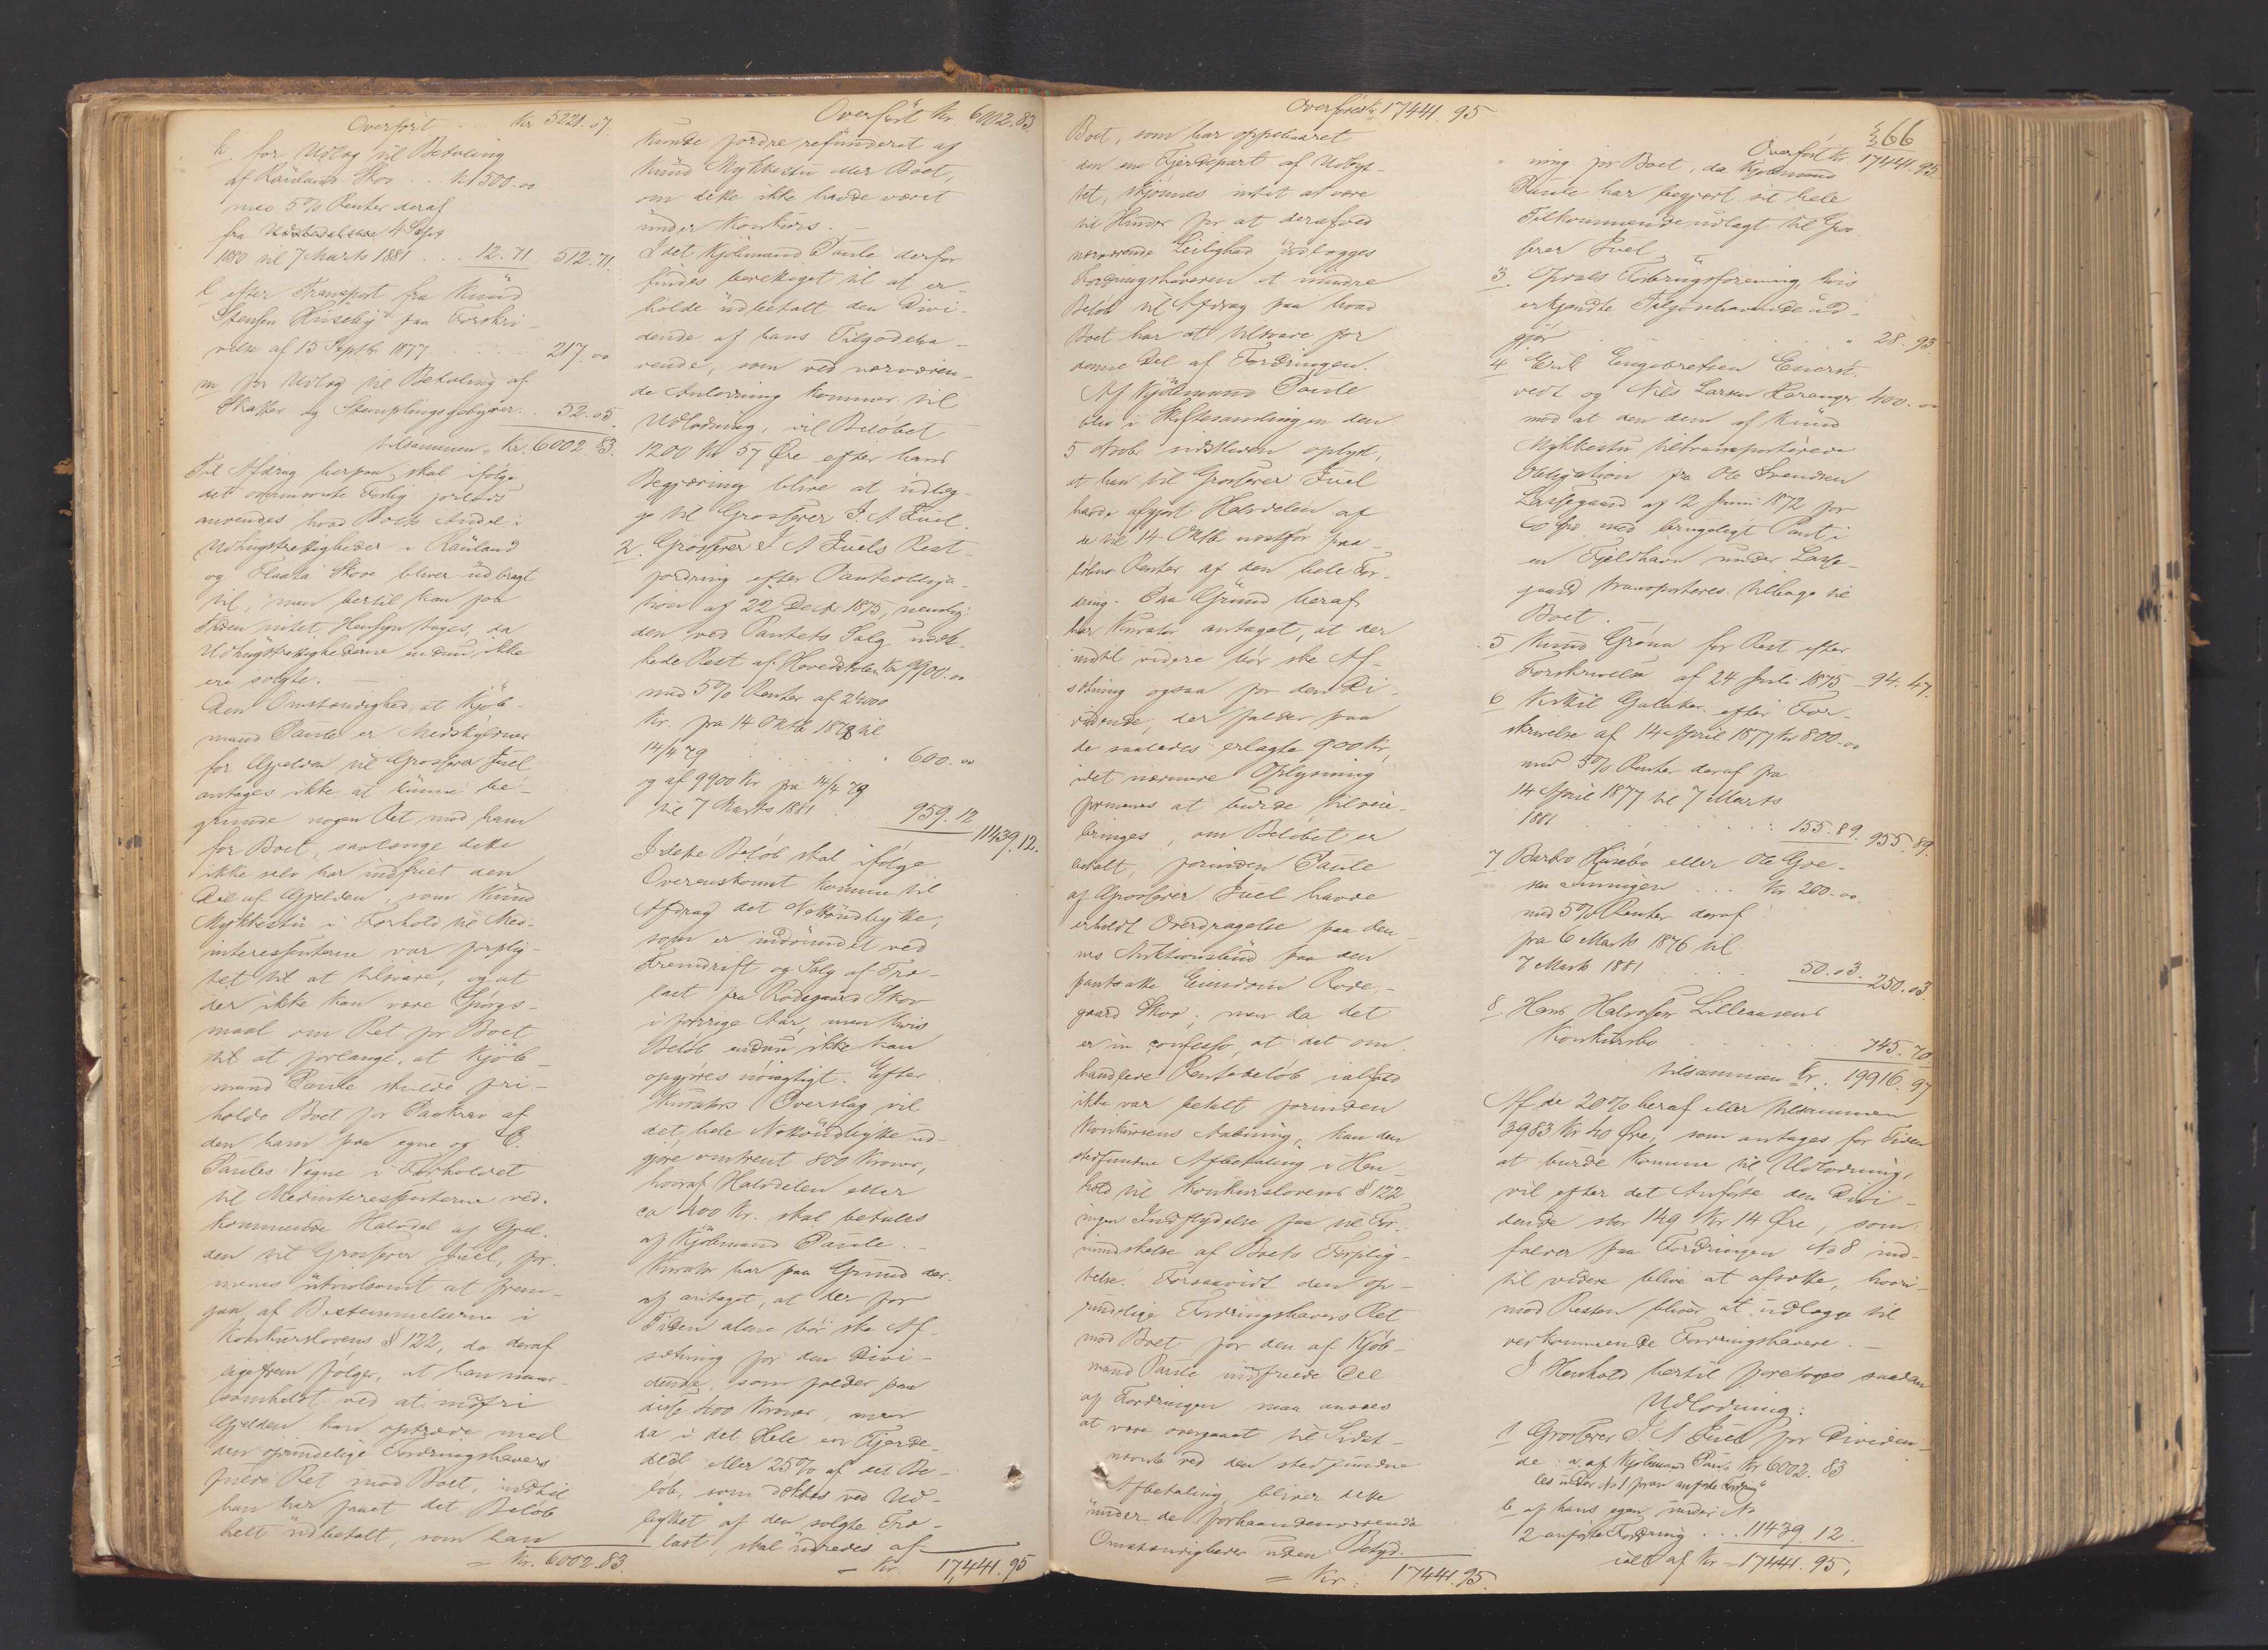 Overført Kr. 5221.07.
k. for Udlæg til Betaling
af Rauland Skov . . Kr 500.00
med 5% Renter deraf
fra 4 Septbr
1880 til 7 Marts 1881 . . . 12.71 512.71.
l efter Transport fra Knud
Stensen Huseby paa Forskri-
velse af 15 Septbr 1877 . . . . 217.00
m for Udlæg til Betaling af
Skatter og Stemplingsgebyrer . . 52.05.
tilsammen = Kr. 6002.83.
Til Afdrag herpaa skal ifølge
det ommeldte Forlig forlods
anvendes hvad Boets Andel i
Udhugstrettigheder i Rauland
og Skove bliver udbragt
til, men hertil kan for
Tiden intet Hensyn tages, da
Udhugstrettighederne endnu ikke
ere solgte. —
Den Omstændighed, at Kjøb-
mand Paule er Medskyldner
for Gjælden til Grosserer Juel
antages ikke at kunne be-
grunde nogen Ret mod ham
for Boet, saalænge dette
ikke selv har indfriet den
Del af Gjælden, som Knud
Mykkestu i Forhold til Med-
interessenterne var forplig-
tet til at tilsvare, og at
der ikke kan være Spørgs-
maal om Ret for Boet
til at forlange, at Kjøb-
mand Paule skulde fri-
holde Boet for Paakrav af
den ham paa egne og
Paules Vegne i Forholdet
til Medinteressenterne ved-
kommende Halvdel af Gjæl-
den til Grosserer Juel, for-
menes utvivlsomt at frem-
gaa af Bestemmelserne i
Konkurslovens § 122, da deraf
ligefrem følger, at han naar-
somhelst ved at indfri
Gjælden kan optræde med
den oprindelige Fordringshavers
fulde Ret mod Boet, indtil
han har faaet det Beløb
helt udbetalt, som han
= Kr. 6002.83.
Overført Kr. 6002.83.
kunde fordre refunderet af
Knud Mykkestu eller Boet,
om dette ikke havde været
under Konkurs. —
Idet Kjøbmand Paule derfor
findes berettiget til at er-
holde udbetalt den Divi-
dende af hans Tilgodeha-
vende, som ved nærværen-
de Anledning kommer til
Udlodning, vil Beløbet
1200 Kr 57 Øre efter hans
Begjæring blive at udlæg-
ge til Grosserer J. A Juel.
2. Grosserer J A Juels Rest-
fordring efter Panteobliga-
tion af 22 Decbr 1875, nemlig:
den ved Pantets Salg udæk-
kede Rest af Hovedstolen Kr 9900.00
med 5% Renter af 24000
Kr. fra 14 Oktbr 1878 til
14/4 79 . . . . . . . . 600.00
og af 9900 Kr fra 14/4 79
til 7 Marts 1881 . . 959.12
11439.12.
I dette Beløb skal ifølge
Overenskomst komme til
Afdrag det Nettoudbytte,
som er indvundet ved
Fremdrift og Salg af Træ-
last fra Rodegaard Skov
i forrige Aar, men hvis
Beløb endnu ikke kan
opgjøres nøiagtigt. Efter
Kurators Overslag vil
det hele Nettoudbytte ud-
gjøre omtrent 800 Kroner,
hvoraf Halvdelen eller
ca 400 Kr. skal betales
af Kjøbmand Paule. —
Kurator har paa Grund der-
af antaget, at der for
Tiden alene bør ske Af-
sætning for den Divi-
dende, som falder paa
disse 400 Kroner, men
da i det Hele en Fjerde-
del eller 25% af det Be-
løb, som dækkes ved Ud-
byttet af den solgte Træ-
last, skal udredes af
= Kr. 17,441.95
Overført Kr 17441.95
Boet, som har oppebaaret
den ene Fjerdepart af Udbyt-
tet, skjønnes intet at være
til Hinder for at derafved
nærværende Leilighed udlægges
Fordringshaveren et mindre
Beløb til Afdrag paa hvad
Boet har at tilsvare for
denne Del af Fordringen.
Af Kjøbmand Paule
blev i Skiftesamlingen den
5 Novbr sidstleden oplyst,
at han til Grosserer Juel
havde afgjort Halvdelen af
de til 14 Oktbr næstfør paa-
løbne Renter af den hele For-
dring. Paa Grund heraf
har Kurator antaget, at der
indtil videre bør ske Af-
sætning ogsaa for den Di-
vidende, der falder paa
de saaledes erlagte 900 Kr,
idet nærmere Oplysning
formenes at burde tilveie-
bringes, om Beløbet er
betalt, forinden Paule
af Grosserer Juel havde
erholdt Overdragelse paa den-
nes Auktionsbud paa den
pantsatte Eiendom Rode-
gaard Skov; men da det
er in confesso, at det om-
handlede Rentebeløb ialfald
ikke var betalt forinden
Konkursens Aabning, kan den
stedfundne Afbetaling i Hen-
hold til Konkurslovens § 122
ingen Indflydelse faa til For-
mindskelse af Boets Forplig-
telse. Forsaavidt den op-
rindelige Fordringshavers Ret
mod Boet for den af Kjøb-
mand Paule indfriede Del
af Fordringen maa ansees
at være overgaaet til Sidst-
nævnte ved den stedfundne
Afbetaling, bliver dette
under de forhaandenværende
Omstændigheder uden Betyd-
= Kr: 17441.95.
366
Overført Kr. 17441.95
ning for Boet, da Kjøbmand
Paule har begjært sit hele
Tilkommende udlagt til Gros-
serer Juel.
3 Opdals Forbrugsforening, hvis
erkjendte Tilgodehavende ud-
gjør . . . . . . . " 28.93
4 Erik Engebretsen Enerst-
vedt og Nils Larsen Haranger 400.00
mod at den dem af Knud
Mykkestu tiltransporterede
Obligation fra Ole Svendsen
Lassegaard af 12 Juni 1872 for
Spd med brugeligt Pant i
en Fjeldhavn under Lasse-
gaard transporteres tilbage til
Boet.
5 Knud Grøna for Rest efter
Forskrivelse af 24 Juli 1875 — 94.47.
6 Kittil efter For-
skrivelse af 14 April 1877 Kr 800.00
med 5% Renter deraf fra
14 April 1877 til 7 Marts
1881 . . . . . . . : 155.89. 955.89.
7 Barbro Husebø eller Ole
. . . Kr 200.00
med 5% Renter deraf
fra 6 Marts 1876 til
7 Marts 1881 . . . . 50.03. 250.03.
8. Hans Halvorsen Lilleaasens
Konkursbo . . . . . . 745.70
tilsammen = Kr. 19916.97
Af de 20% heraf eller tilsammen
3983 Kr 40 Øre, som antages for Tiden
at burde komme til Udlodning,
vil efter det Anførte den Divi-
dende stor 149 Kr 14 Øre, som
falder paa Fordringen No 8 ind-
til videre blive at afsætte, hvori-
mod Resten bliver at udlægge til
vedkommende Fordringshavere. —
I Henhold hertil foretages saadan
Udlodning:
1 Grosserer J. A Juel for Dividen-
de: a af Kjøbmand Pau- Kr 6002.83
les under No 1 foran anførte Fordring
b af hans egen under No
2 anførte Fordring . . . 11439.12.
ialt af Kr — 17441.95,